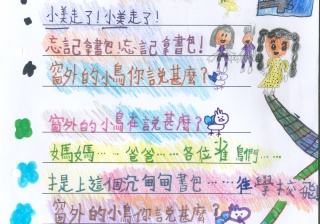 小美走了！小美走了！
忘記拿書包！忘記拿書包！
窗外的小鳥你說甚麼？
窗外的小鳥在說甚麼？
媽媽……爸爸……各位雀鳥們……
揹上這個沉甸甸書包……往學校飛
窗外的小鳥你說甚麼？